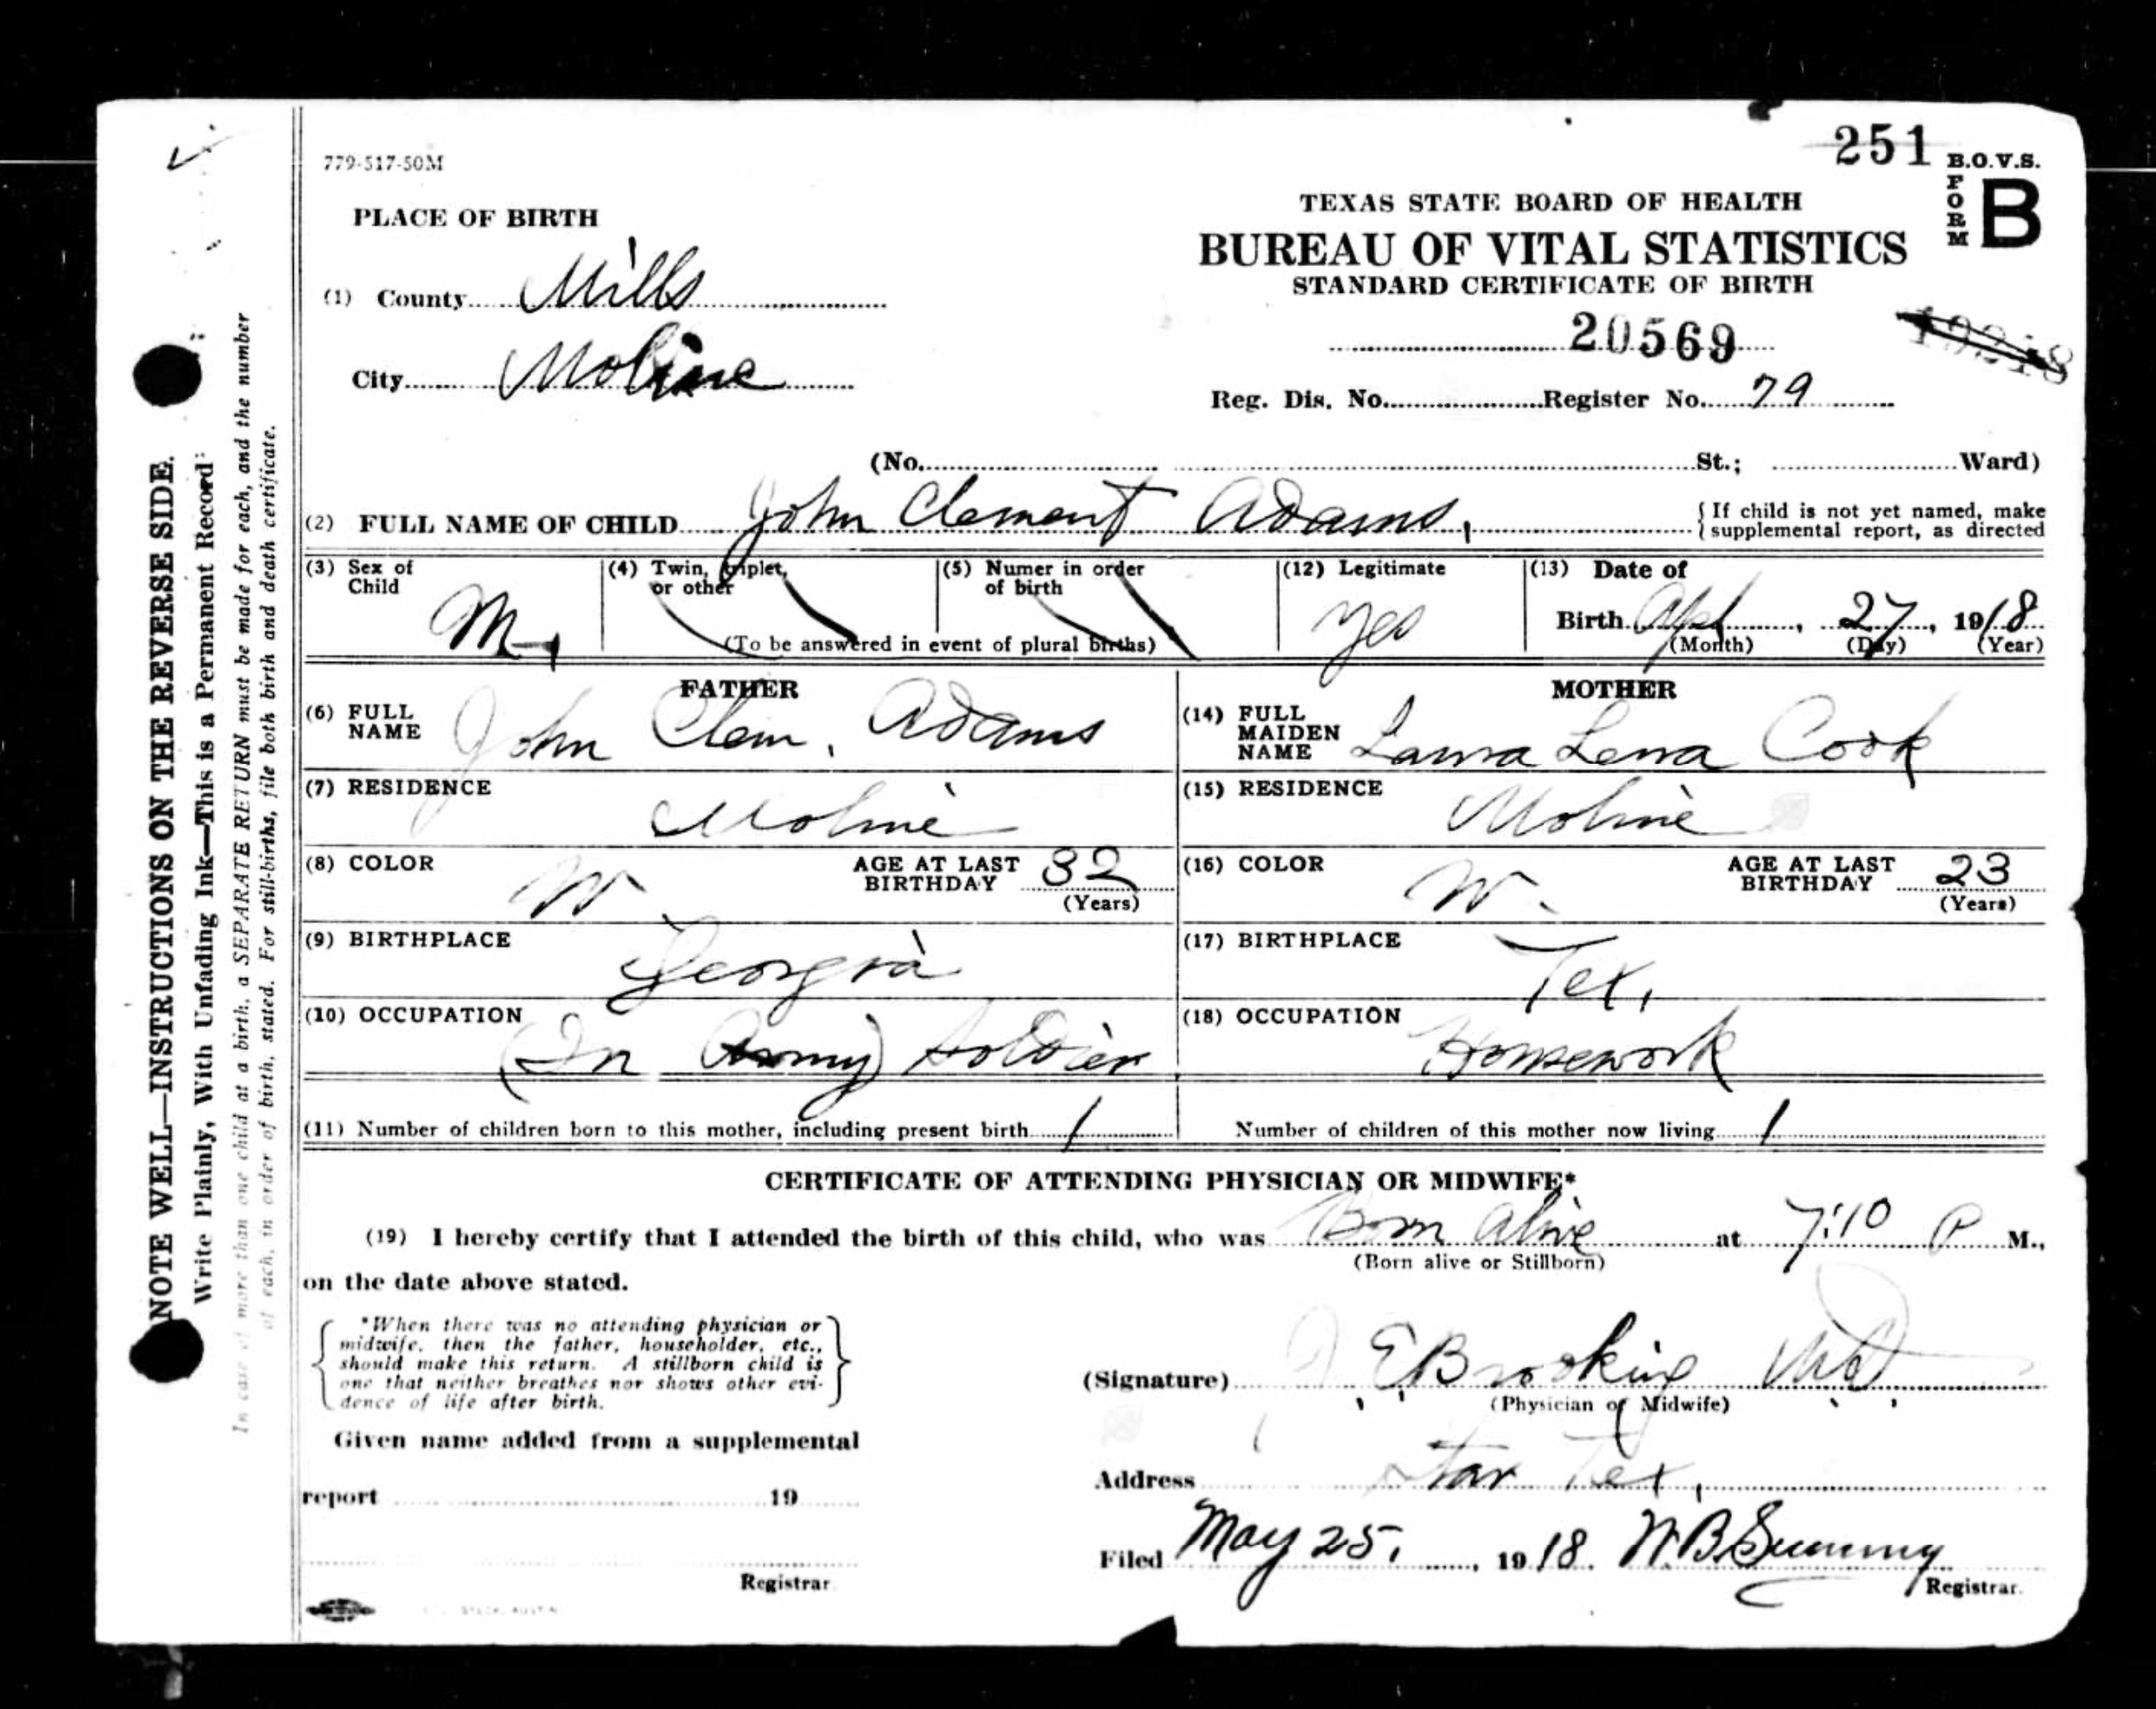 251 B.O.V.S.
FORM B
779-517-50M
PLACE OF BIRTH
TEXAS STATE BOARD OF HEALTH
BUREAU OF VITAL STATISTICS
STANDARD CERTIFICATE OF BIRTH
(1) County Mills
20569
City Moline
Reg. Dis. No. Register No. 79
(No. St.; Ward)
(2) FULL NAME OF CHILD John Clement Adams,
{ If child is not yet named, make
supplemental report, as directed
(3) Sex of Child M
(4) Twin, triplet, or other
(5) Numer in order of birth
(To be answered in event of plural births)
(12) Legitimate yes
(13) Date of
Birth Apl 27, 1918
(Month) (Day) (Year)
FATHER
(6) FULL NAME John Clem. Adams
(7) RESIDENCE Moline
(8) COLOR W AGE AT LAST BIRTHDAY 32
(Years)
(9) BIRTHPLACE Georgia
(10) OCCUPATION (In Army) Soldier
MOTHER
(14) FULL MAIDEN NAME Laura Lena Cook
(15) RESIDENCE Moline
(16) COLOR W. AGE AT LAST BIRTHDAY 23
(Years)
(17) BIRTHPLACE Tex.
(18) OCCUPATION Housework
(11) Number of children born to this mother, including present birth 1
Number of children of this mother now living 1
CERTIFICATE OF ATTENDING PHYSICIAN OR MIDWIFE*
(19) I hereby certify that I attended the birth of this child, who was Born Alive at 7:10 P M.,
(Born alive or Stillborn)
on the date above stated.
*When there was no attending physician or
midwife, then the father, householder, etc.,
should make this return. A stillborn child is
one that neither breathes nor shows other evi-
dence of life after birth.
Given name added from a supplemental
report 19
Registrar
(Signature) J E Brooking MD
(Physician or Midwife)
Address Star Tex.
Filed May 25, 1918. W.B. Summy
Registrar.
NOTE WELL—INSTRUCTIONS ON THE REVERSE SIDE.
Write Plainly, With Unfading Ink—This is a Permanent Record
In case of more than one child at a birth, a SEPARATE RETURN must be made for each, and the number
of each, in order of birth, stated. For still-births, file both birth and death certificate.